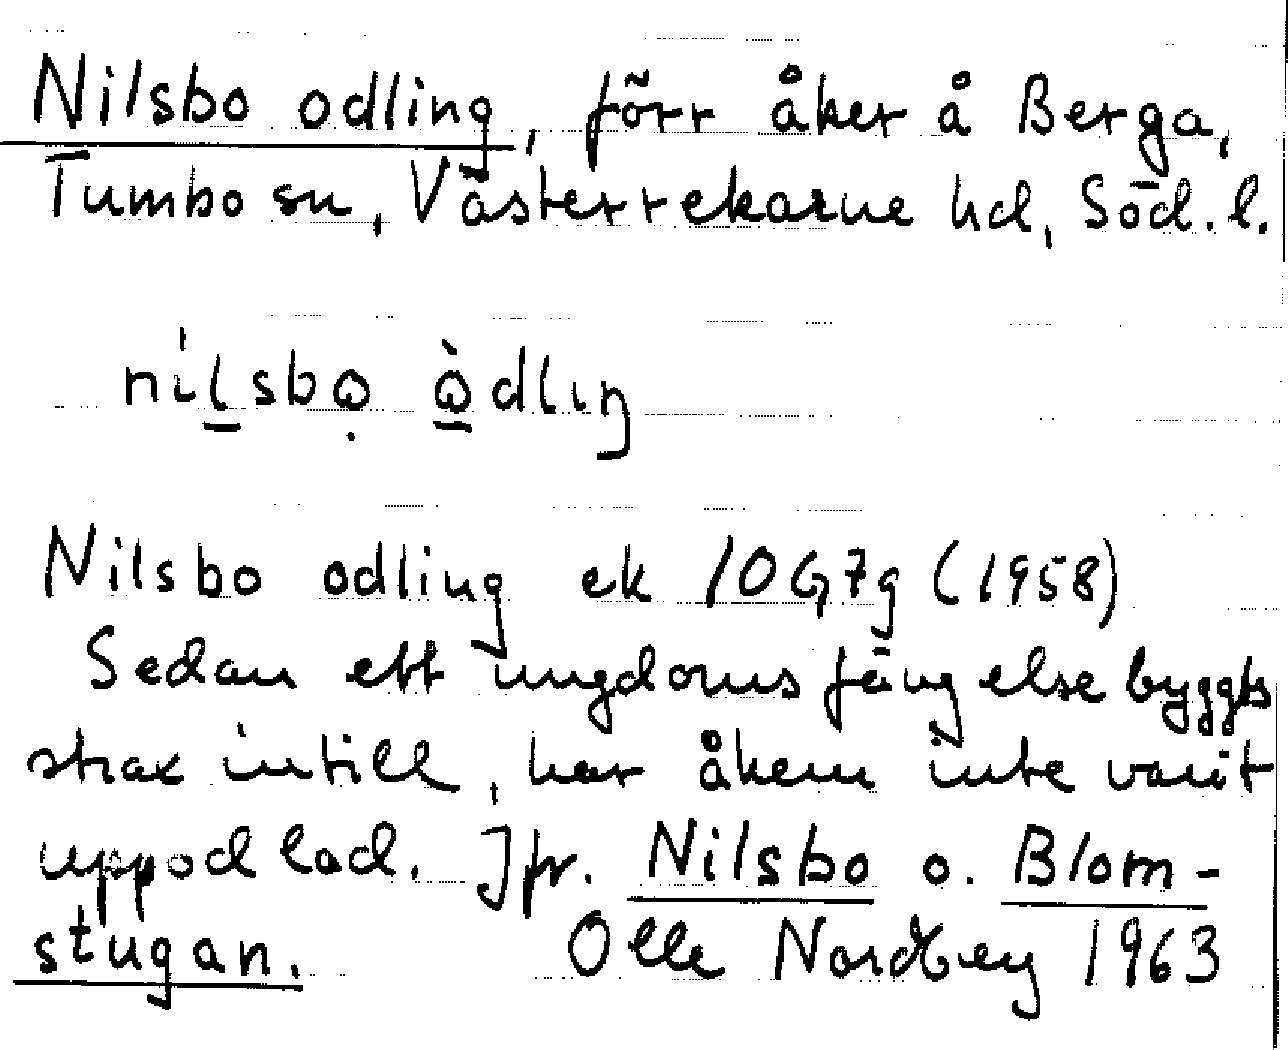 Nilsbo odling, förr åker å Berga,
Tumbo sn, Västerrekarne hd, Söd. l.
nilsbo òdliŋ
Nilsbo odling ek 10G7g (1958)
Sedan ett ungdomsfängelse byggts
strax intill, har åkern inte varit
uppodlad. Jfr. Nilsbo o. Blom-
stugan. Olle Nordberg 1963